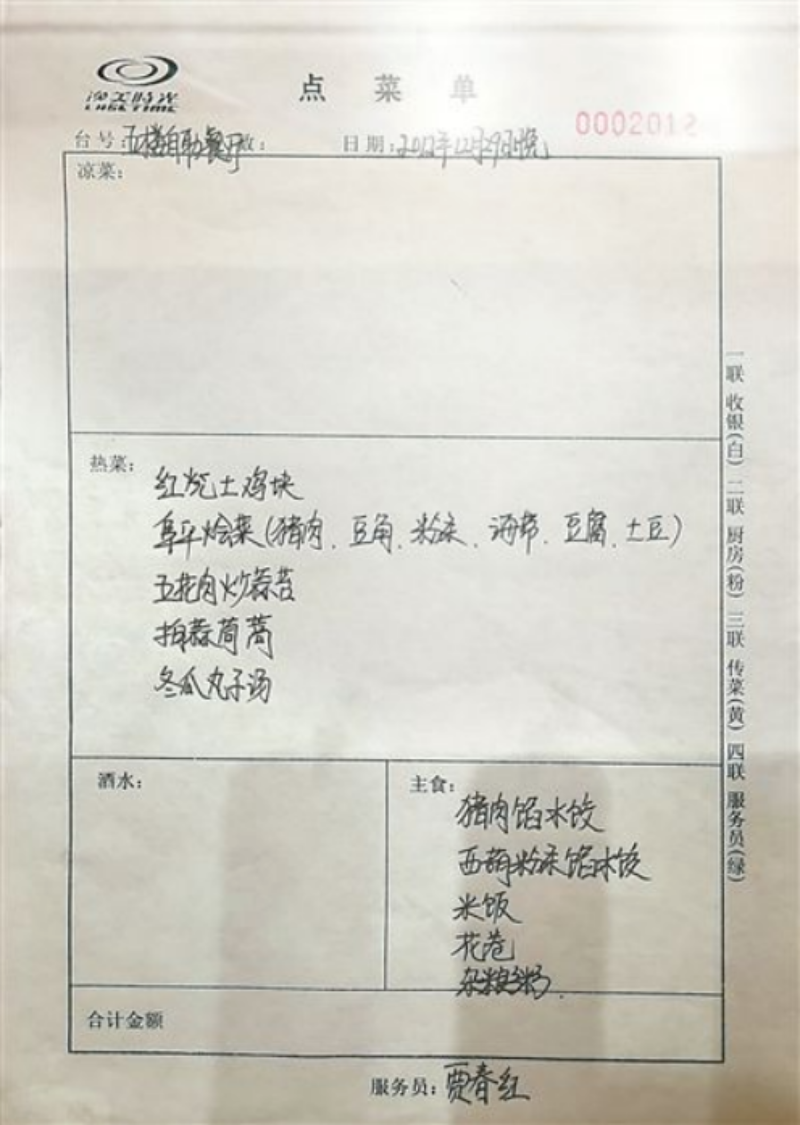 点 菜 单
0002012
台号:五楼自助餐厅 数:
日期:2012年12月29日晚
凉菜:
热菜:
红烧土鸡块
阜平烩菜(猪肉、豆角、粉条、海带、豆腐、土豆)
五花肉炒蒜苔
拍蒜茼蒿
冬瓜丸子汤
酒水:
主食:
猪肉馅水饺
西葫粉条馅水饺
米饭
花卷
杂粮粥.
合计金额
服务员:贾春红
一联 收银(白) 二联 厨房(粉) 三联 传菜(黄) 四联 服务员(绿)